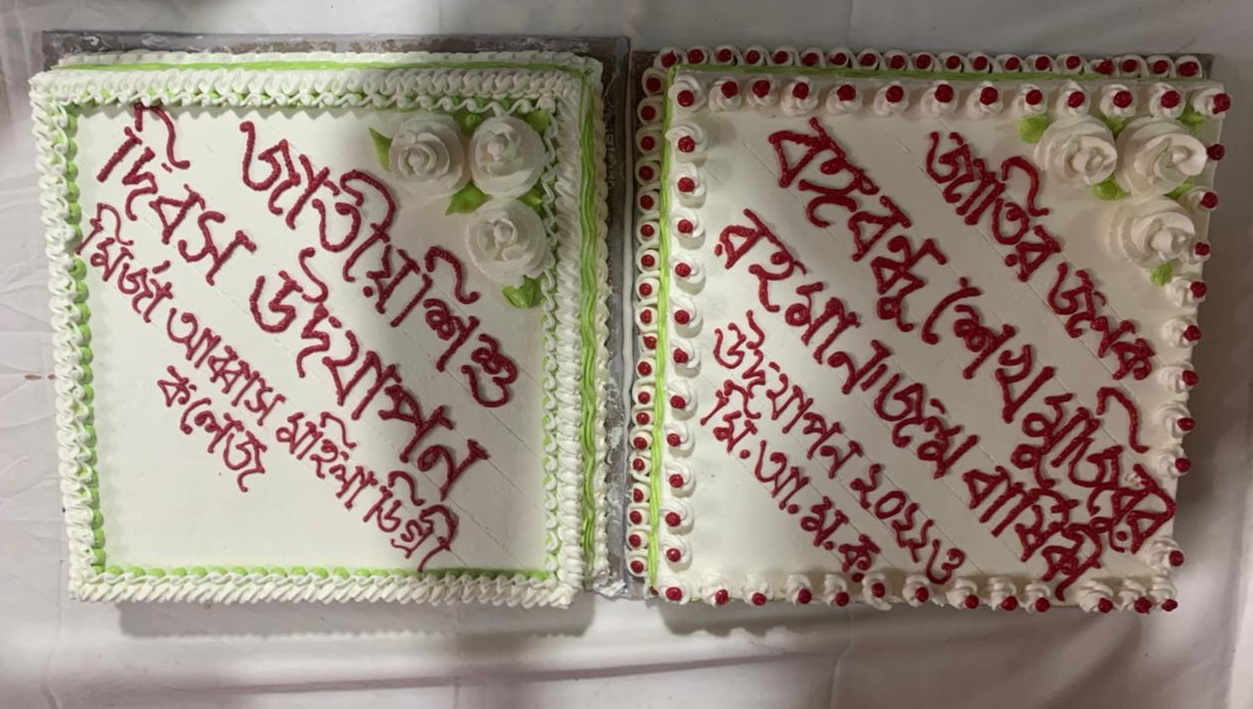 জাতীয় শিশু
দিবস উদযাপন
মির্জা আব্বাস মহিলা ডিগ্রী
কলেজ
জাতির জনক
বঙ্গবন্ধু শেখ মুজিবুর
রহমান জন্ম বার্ষিকী
উদযাপন ২০২১ ও
মি.আ.ম.ক